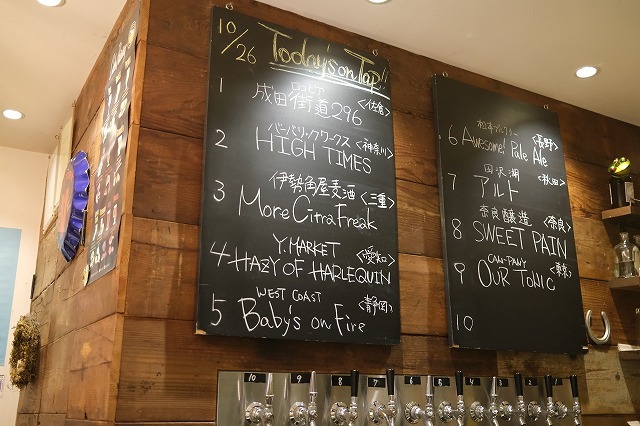 10/26 Today's on Tap!!
1 成田街道296 <佐倉>
バーバリックワークス <神奈川>
2 HIGH TIMES
伊勢角屋麦酒 <三重>
3 More Citra Freak
Y.MARKET <愛知>
4 HAZY OF HARLEQUIN
WEST COAST <静岡>
5 Baby's on Fire
松本ブルワリー <長野>
6 Awesome! Pale Ale
田沢湖 <秋田>
7 アルト
奈良醸造 <奈良>
8 SWEET PAIN
<東京>
9 OUR TONIC
10
10 9 8 7 6 5 4 3 2 1